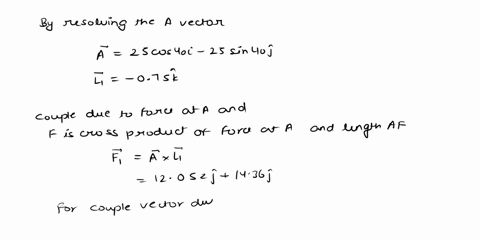 By resolving the A vector
A⃗ = 25cos40i − 25 sin40ĵ
L⃗₁ = −0.75k̂
Couple due to force at A and
F is cross product of force at A and length AF
F⃗₁ = A⃗ × L⃗₁
= 12.052ĵ + 14.36ĵ
for couple vector du